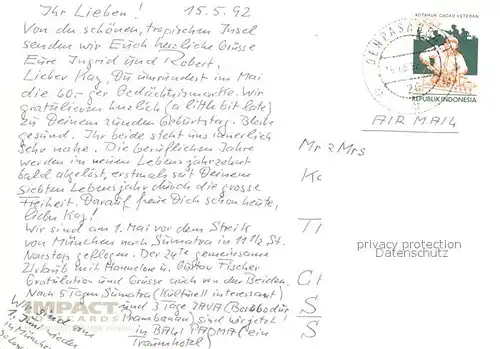 Ihr Lieben! 15.5.92
Von der schönen, tropischen Insel
senden wir Euch herzliche Grüsse
Eure Ingrid und Robert.
Lieber Kay, Du umrundest im Mai
die 60-er Gedächtnismarke. Wir
gratulieren herzlich (a little bit late)
zu Deinem runden Geburtstag. Bleibe
gesund. Ihr beide steht uns innerlich
sehr nahe. Die beruflichen Jahre
werden im neuen Lebensjahrzehnt
bald abgelöst, erstmals seit Deinem
siebten Lebensjahr durch die grosse
Freiheit. Darauf freue Dich schon heute,
lieber Kay!
Wir sind am 1. Mai vor dem Streik
von München nach Sumatra in 11 1/2 St.
Nonstop geflogen. Der 24te gemeinsame
Urlaub mit Hannelore u. Gustav Fischer
Gratulation und Grüsse auch von den Beiden.
Nach 5 Tagen Sumatra (kulturell interessant)
und 3 Tage JAVA (Borobodur,
Prambanan) sind wir jetzt
in BALI PADMA (ein
Traumhotel)
Wir sind am
1. Juni wieder
in München
IMPACT
CARDS
DENPASAR
KOTAMUH CACAD VETERAN
REPUBLIK INDONESIA
AIR MAIL
Mr & Mrs
privacy protection
Datenschutz